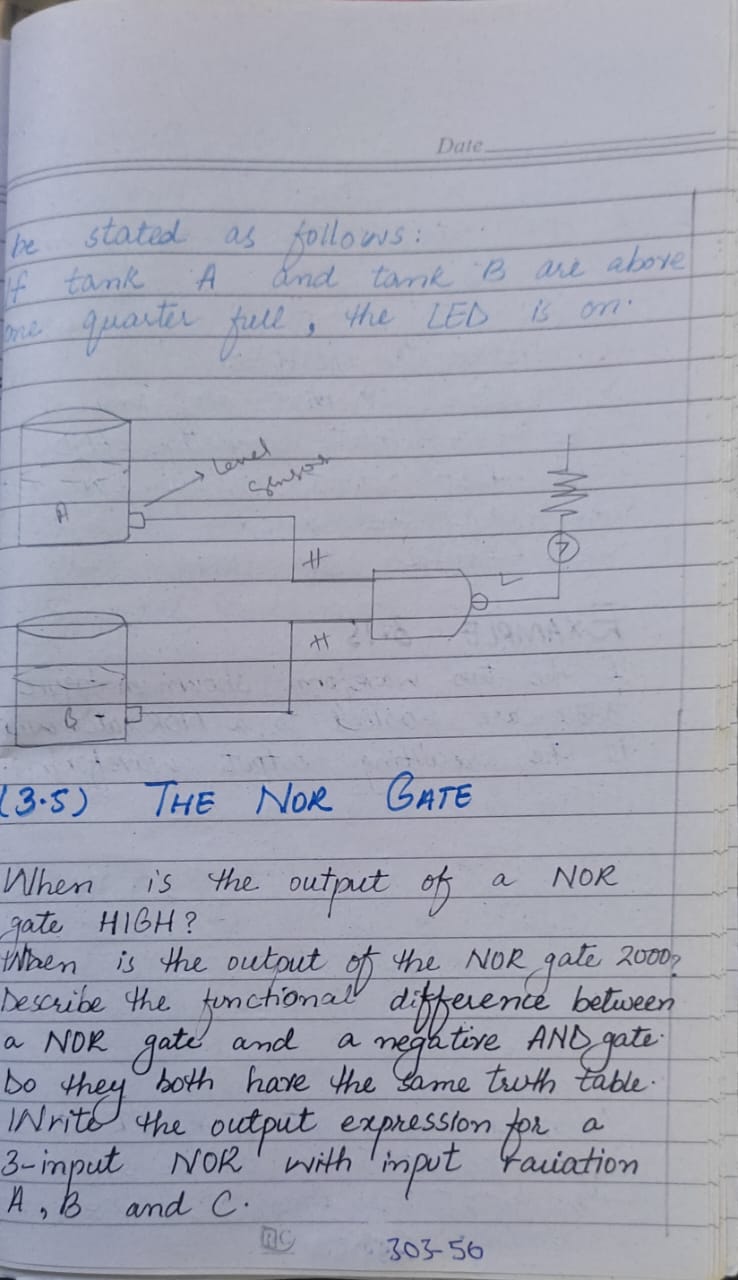 Date
be stated as follows:
If tank A and tank B are above
one quarter full, the LED is on.
A
Level
Sensor
H
L
H
B
(3.5) THE NOR GATE
When is the output of a NOR
gate HIGH?
When is the output of the NOR gate 2000?
Describe the functional difference between
a NOR gate and a negative AND gate.
Do they both have the same truth table.
Write the output expression for a
3-input NOR with input
A, B and C.
303-56